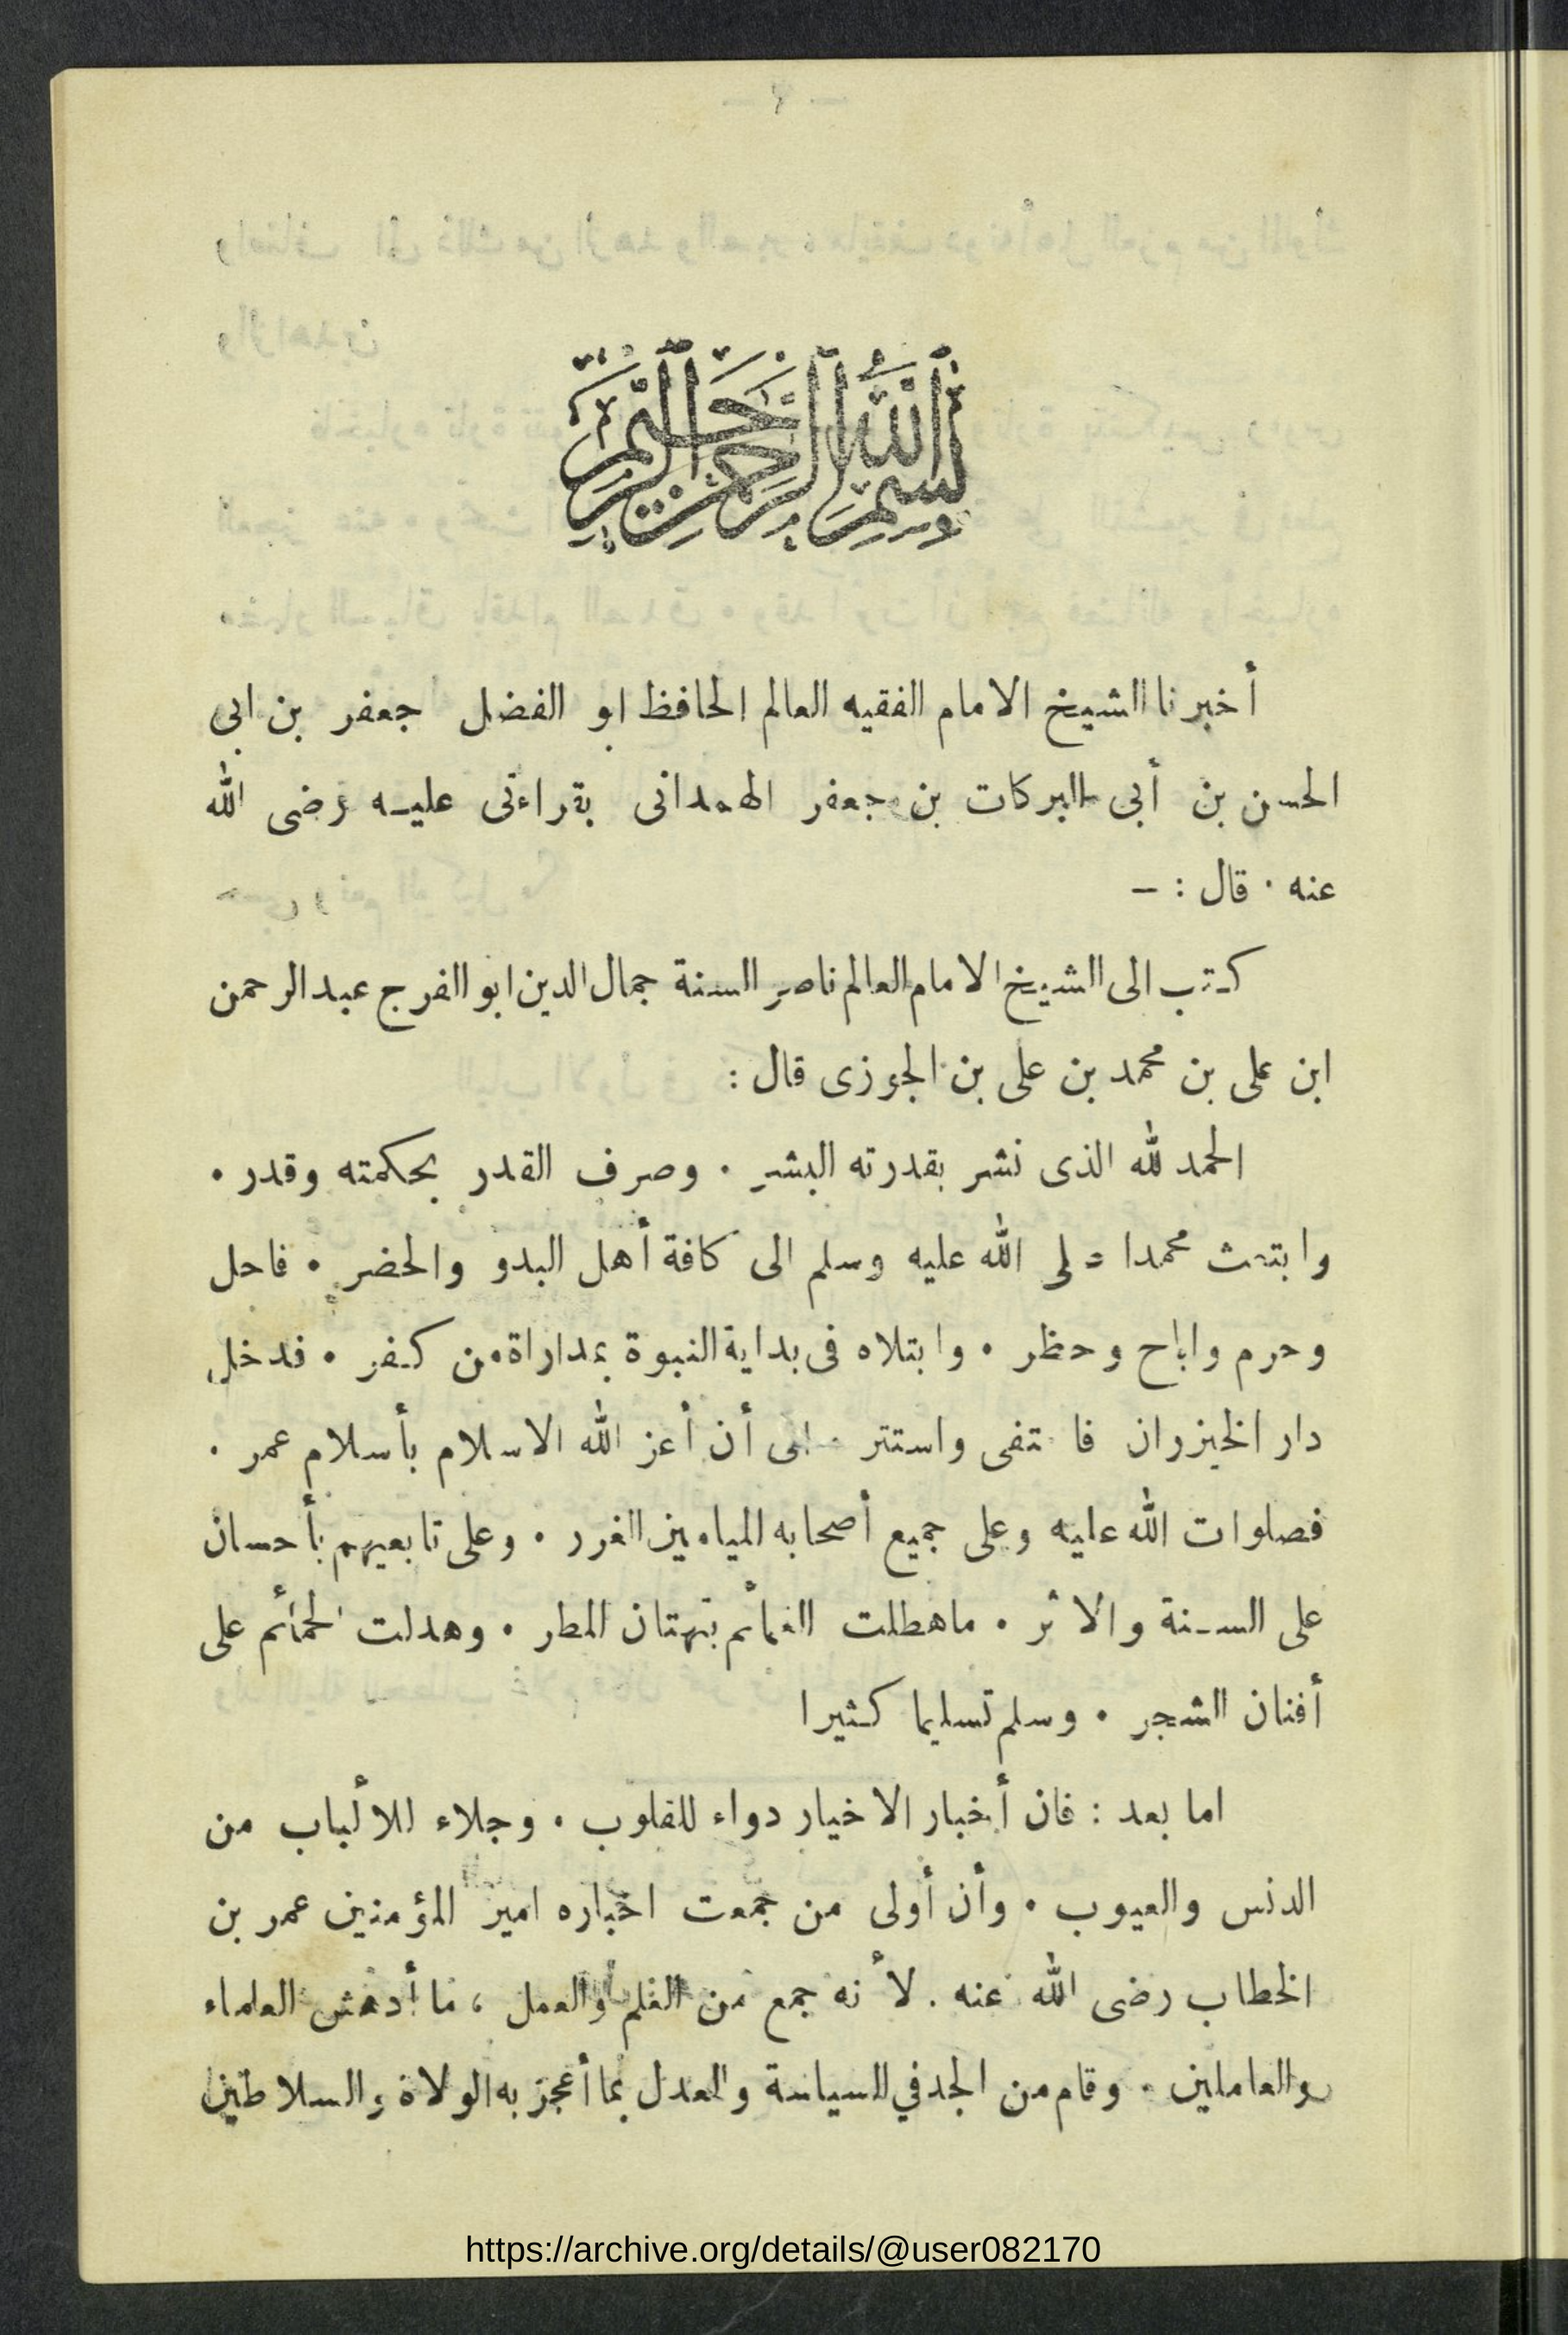 بسم الله الرحمن الرحيم
أخبرنا الشيخ الامام الفقيه العالم الحافظ ابو الفضل جعفر بن ابي
الحسن بن أبي البركات بن جعفر الهمداني بقراءتى عليه رضى الله
عنه . قال : –
كتب الى الشيخ الامام العالم ناصر السنة جمال الدين ابو الفرج عبد الرحمن
ابن على بن محمد بن على بن الجوزى قال :
الحمد لله الذى نشر بقدرته البشر . وصرف القدر بحكمته وقدر .
وابتعث محمدا صلى الله عليه وسلم الى كافة أهل البدو والحضر . فاحل
وحرم واباح وحظر . وابتلاه فى بداية النبوة بمداراة من كفر . فدخل
دار الخيزران فاختفى واستتر الى أن أعز الله الاسلام بأسلام عمر .
فصلوات الله عليه وعلى جميع أصحابه الميامين الغرر . وعلى تابعيهم بأحسان
على السنة والاثر . ماهطلت الغمائم بتهتان المطر . وهدلت الحمائم على
أفنان الشجر . وسلم تسليما كثيرا
اما بعد : فان أخبار الاخيار دواء للقلوب . وجلاء للألباب من
الدنس والعيوب . وأن أولى من جمعت اخباره امير المؤمنين عمر بن
الخطاب رضى الله عنه . لأنه جمع من العلم والعمل ، ما أدهش العلماء
والعاملين . وقام من الجد في السياسة والعدل بما أعجز به الولاة والسلاطين
https://archive.org/details/@user082170